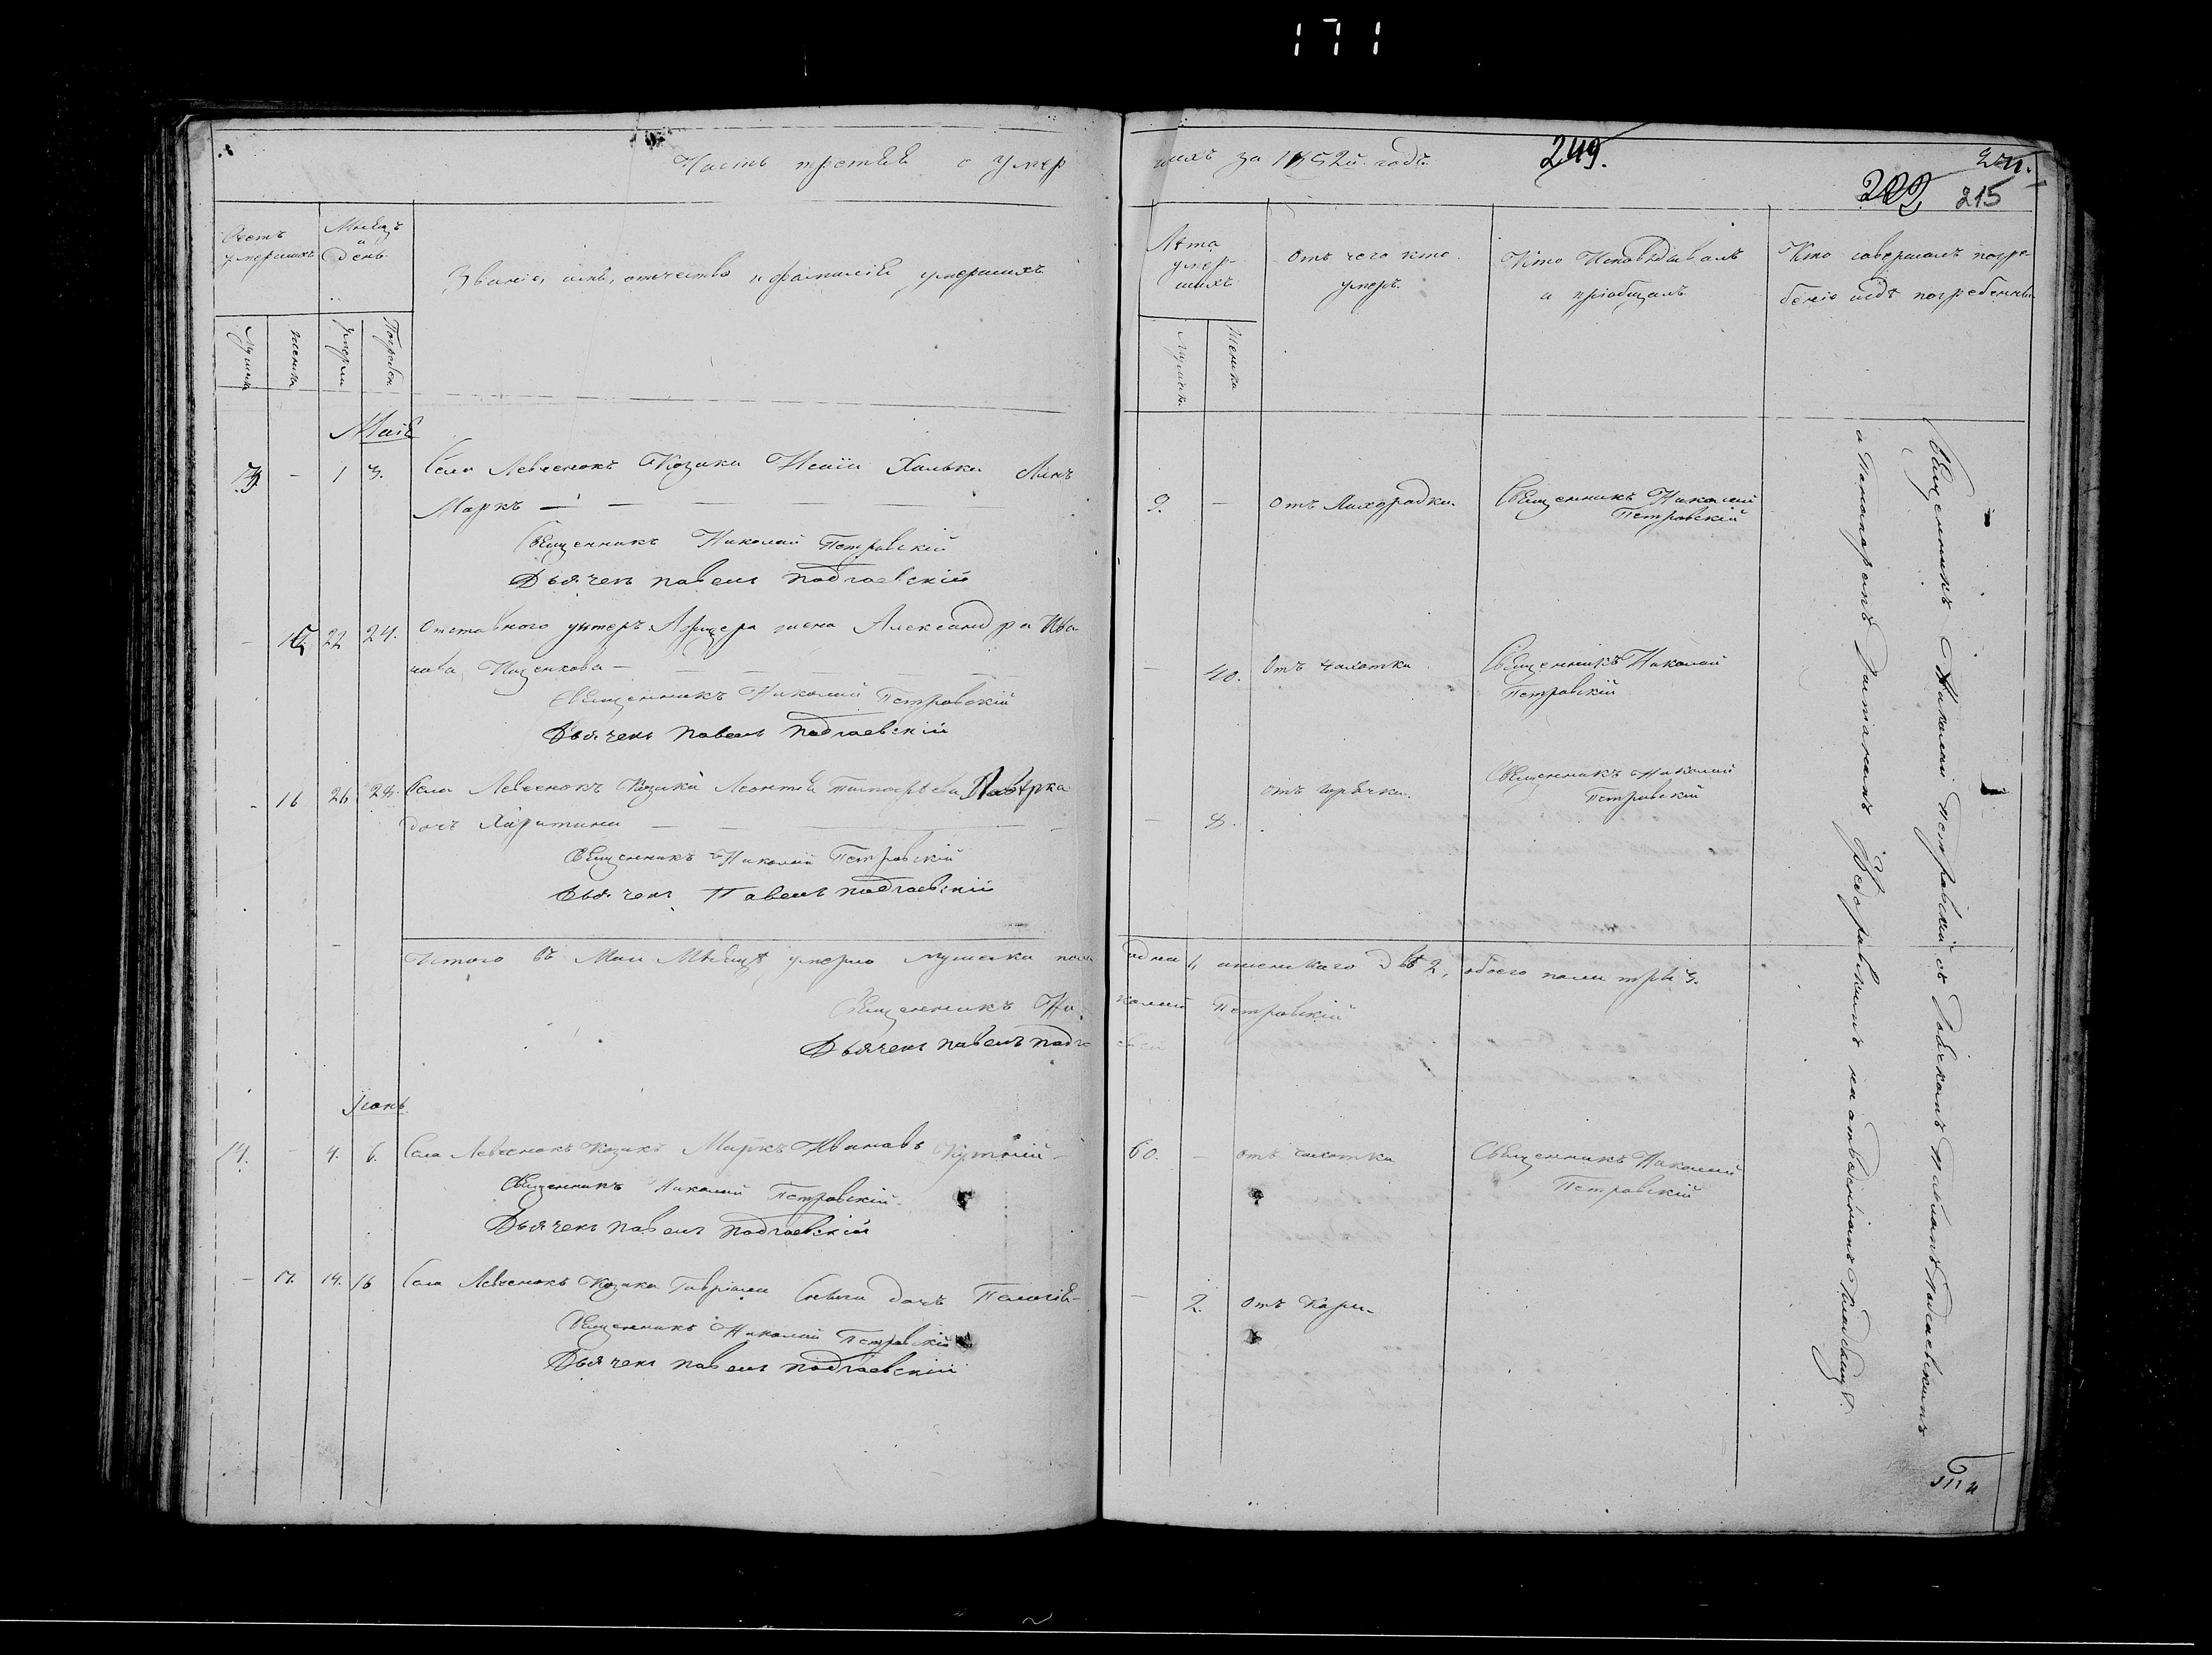 171
Часть третья о умер
шихъ за 1852й годъ.
249.
271.
202 215
Счетъ умершихъ
Мѣсяцъ и день
Званіе, имя, отчество и фамилія умершихъ
Мужска
Женска
умерли
Погребен
Лѣта умер-
шихъ
Мужска.
Женска
Отъ чего кто
умеръ.
Кто Исповѣдывалъ
и пріобщалъ
Кто совершалъ погре
беніе и гдѣ погребенны
Маія
13 - 1 3. Села Левченокъ Козака Исаіи Халька сынъ
Маркъ — — — —
9. - Отъ Лихорадки. Священникъ Николай
Петровскій
Священникъ Николай Петровскій
Дьячекъ павелъ подгаевскій
- 15 22 24. Отставного унтеръ Афицера жена Александра Ива
нова Ищенкова — — —
- 40. Отъ чахотки Священникъ Николай
Петровскій
Священникъ Николай Петровскій
Дьячекъ павелъ подгаевскій
- 16 26 28. Села Левченокъ Козака Леонтія Тимофѣева
дочъ Харитина — — —
- 8. отъ горячки. Священникъ Николай
Петровскій
Священникъ Николай Петровскій
Дьячекъ Павелъ подгаевскій
Итого въ Маи Мѣсяцѣ умерло мужеска пола
одна 1, а женскаго двѣ 2, обоего пола три 3.
Священникъ Ни
колай Петровскій
Дьячекъ павелъ подга
евскій
Іюнь
14. - 4. 6. Села Левченокъ Козакъ Маркъ Ивановъ Кутній —
60. - отъ чахотки Священникъ Николай
Петровскій
Священникъ Николай Петровскій
Дьячекъ павелъ подгаевскій
- 17. 14. 16 Села Левченокъ Козака Гавріила дочъ Пелагія —
- 2. отъ Кори —
Священникъ Николай Петровскій
Дьячекъ павелъ подгаевскій
Священникъ Николай Петровскій съ Дьячкомъ Павломъ Подгаевскимъ
и Пономаремъ Федоровскимъ на отведенномъ Кладбищѣ.